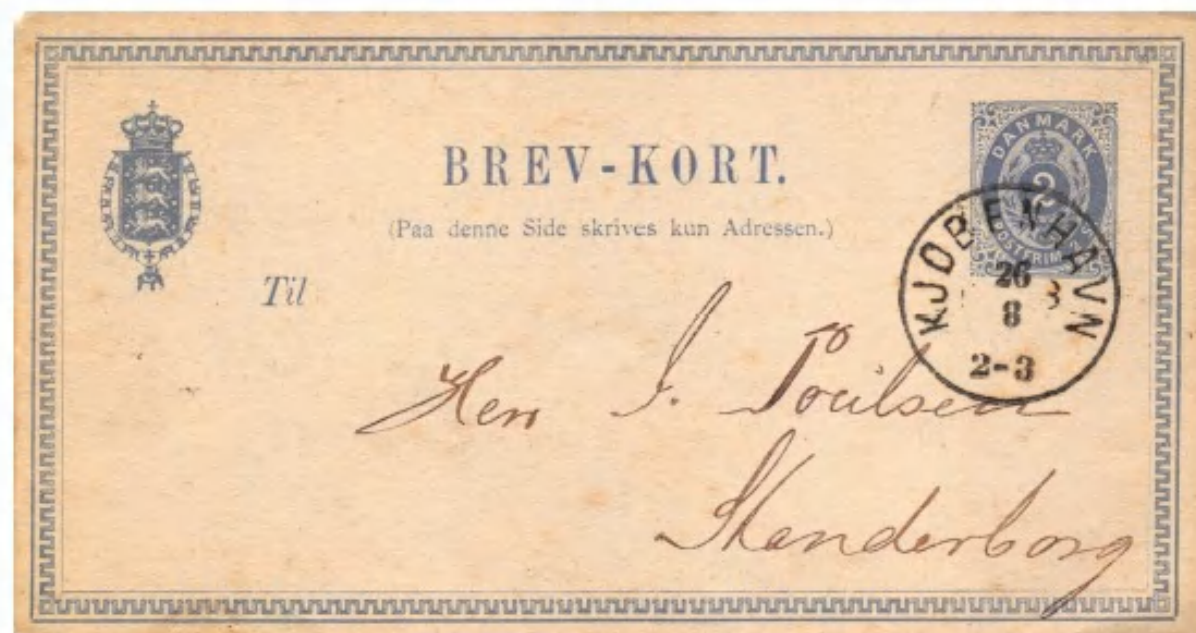 BREV-KORT.
(Paa denne Side skrives kun Adressen.)
DANMARK
2
POSTFRIM
KJØBENHAVN
26
8
2-3
Til
Herr J. Poulsen
Skanderborg